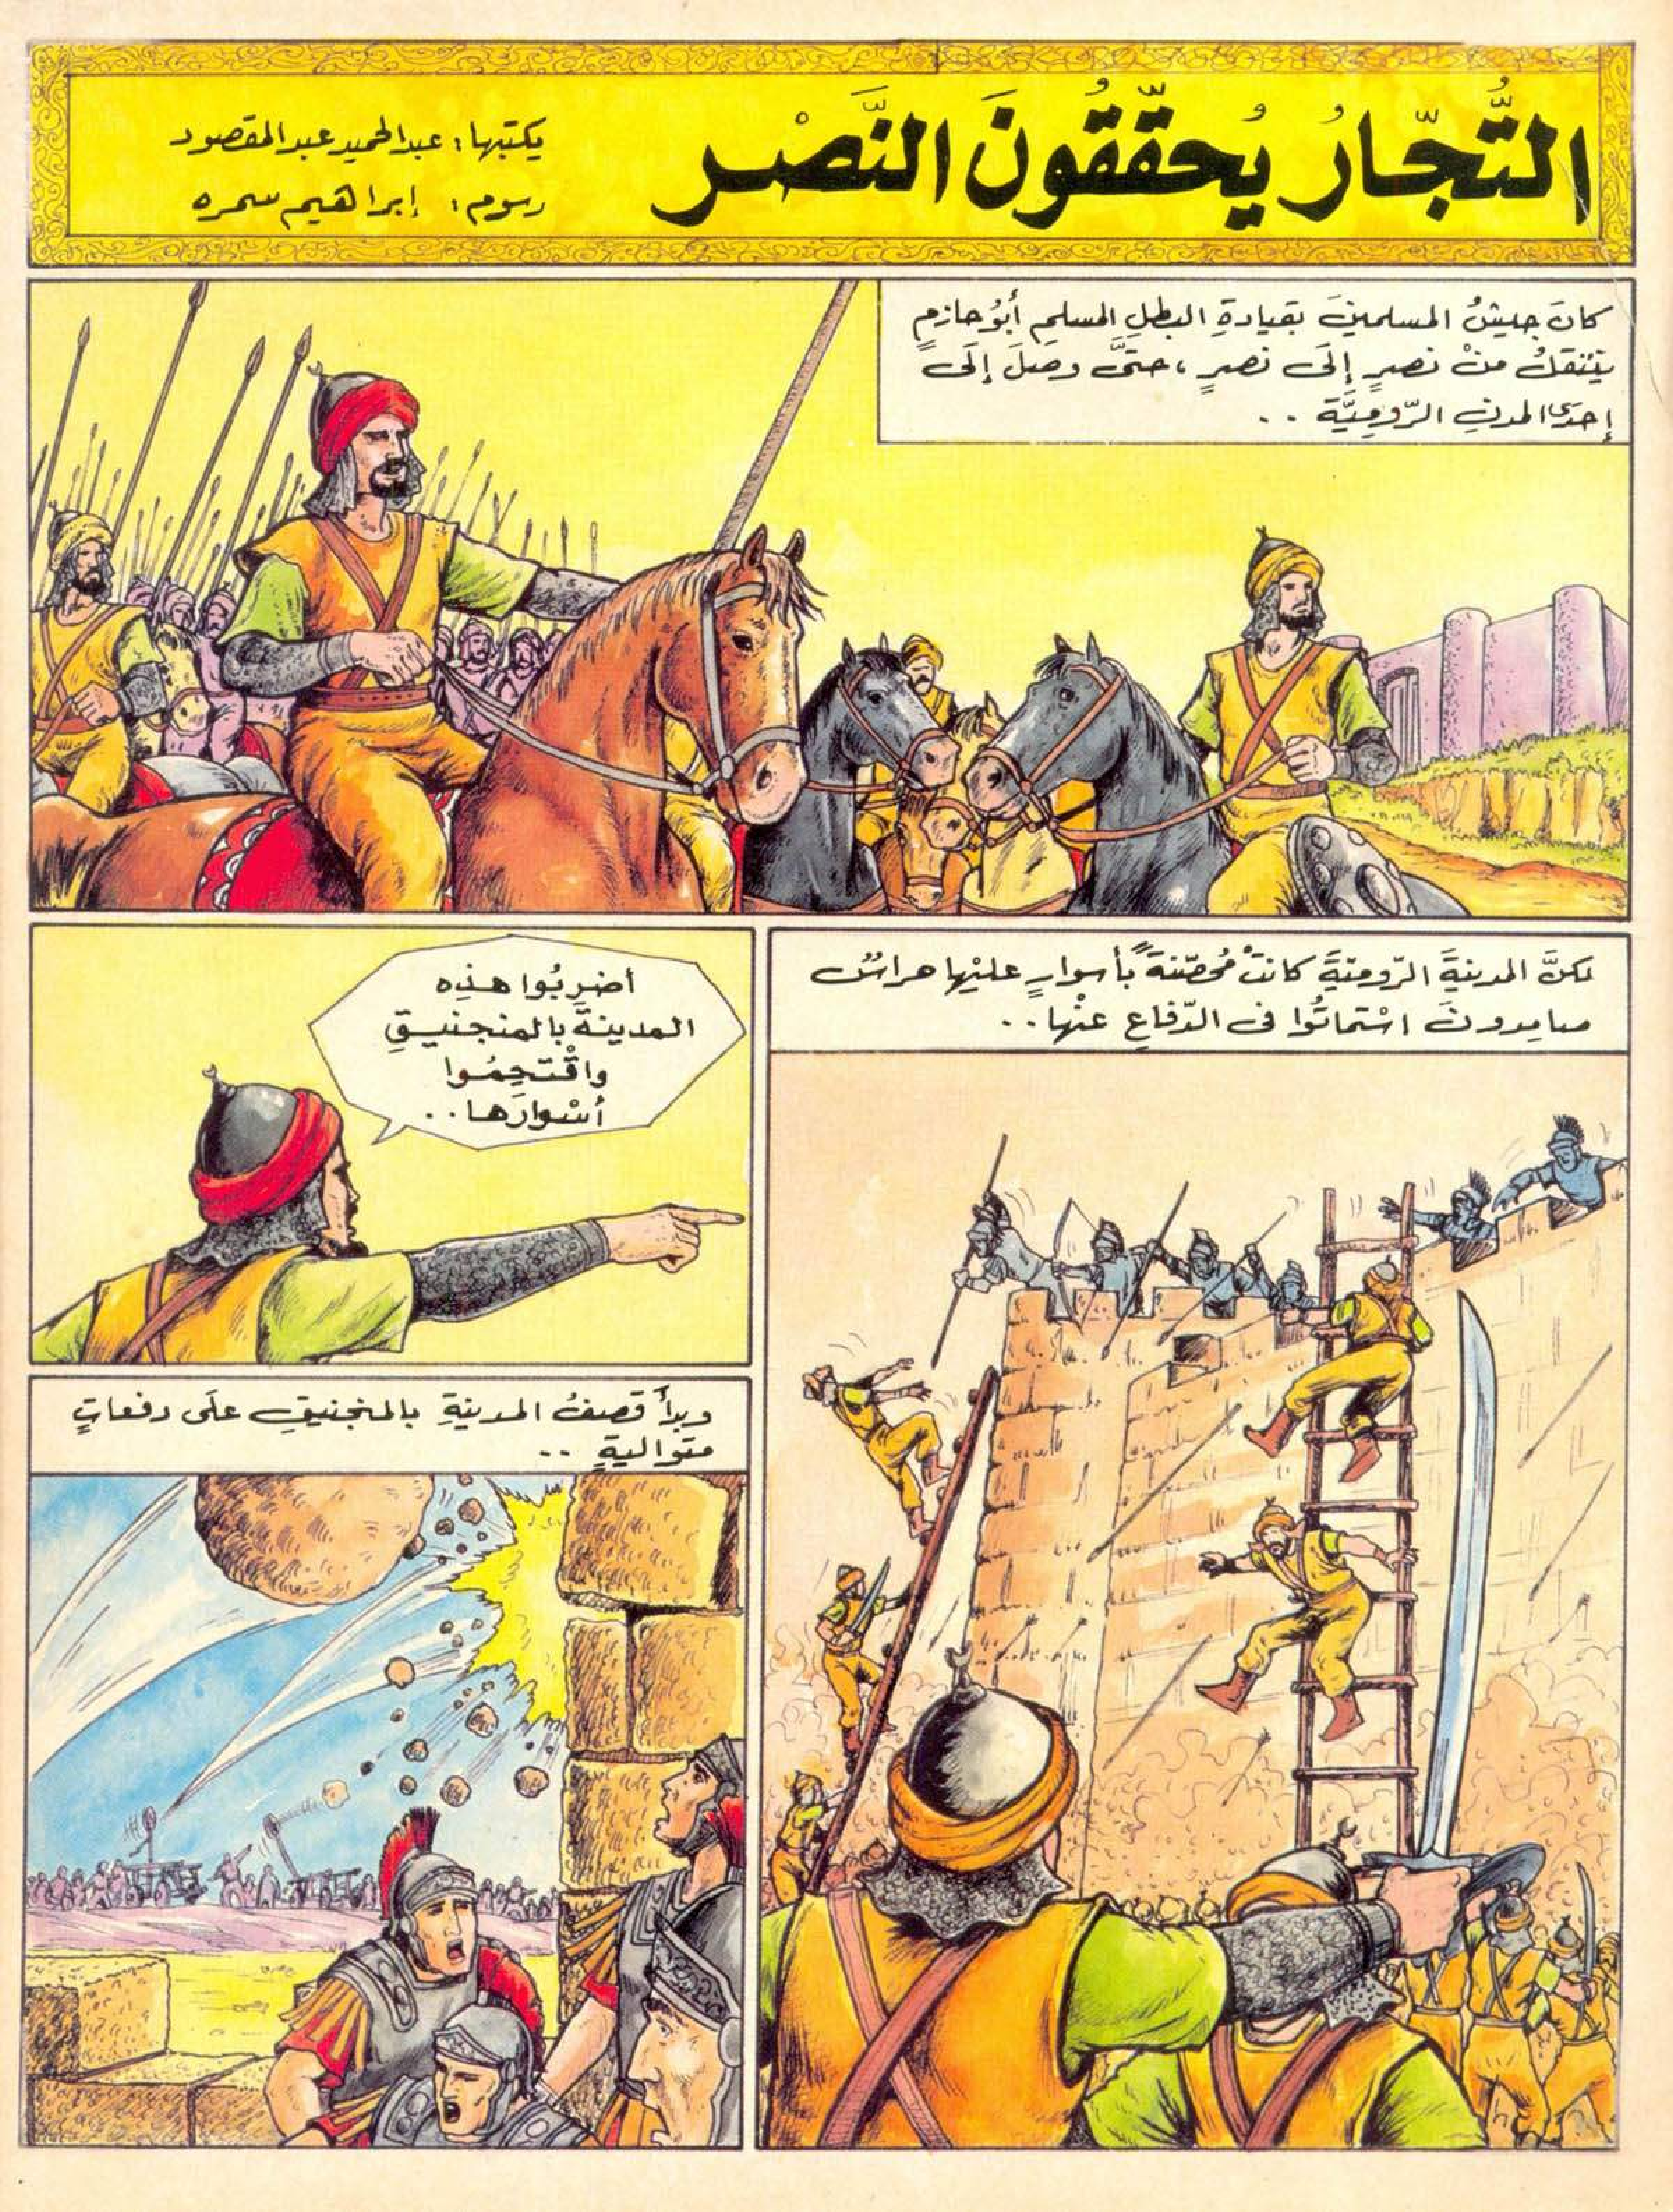 التُّجّارُ يُحقّقُونَ النَّصْر
يكتبها: عبدالحميد عبدالمقصود
رسوم: إبراهيم سمره
كانَ جيشُ المسلمينَ بقيادةِ البطلِ المسلمِ أبُو حازمٍ
يتنقلُ منْ نصرٍ إلَى نصرٍ، حتَّى وصلَ إلَى
إحدَى المدنِ الرّوميَّة ..
لكنَّ المدينةَ الرّوميّةَ كانتْ مُحصّنةً بأسوارٍ عليْها حراسٌ
صامدونَ اسْتماتُوا فى الدّفاعِ عنْها ..
أضربُوا هذه
المدينةَ بالمنجنيقِ
واقْتحِمُوا
أسْوارَها ..
وبدأَ قصفُ المدينةِ بالمنجنيقِ علَى دفعاتٍ
متواليةٍ ..